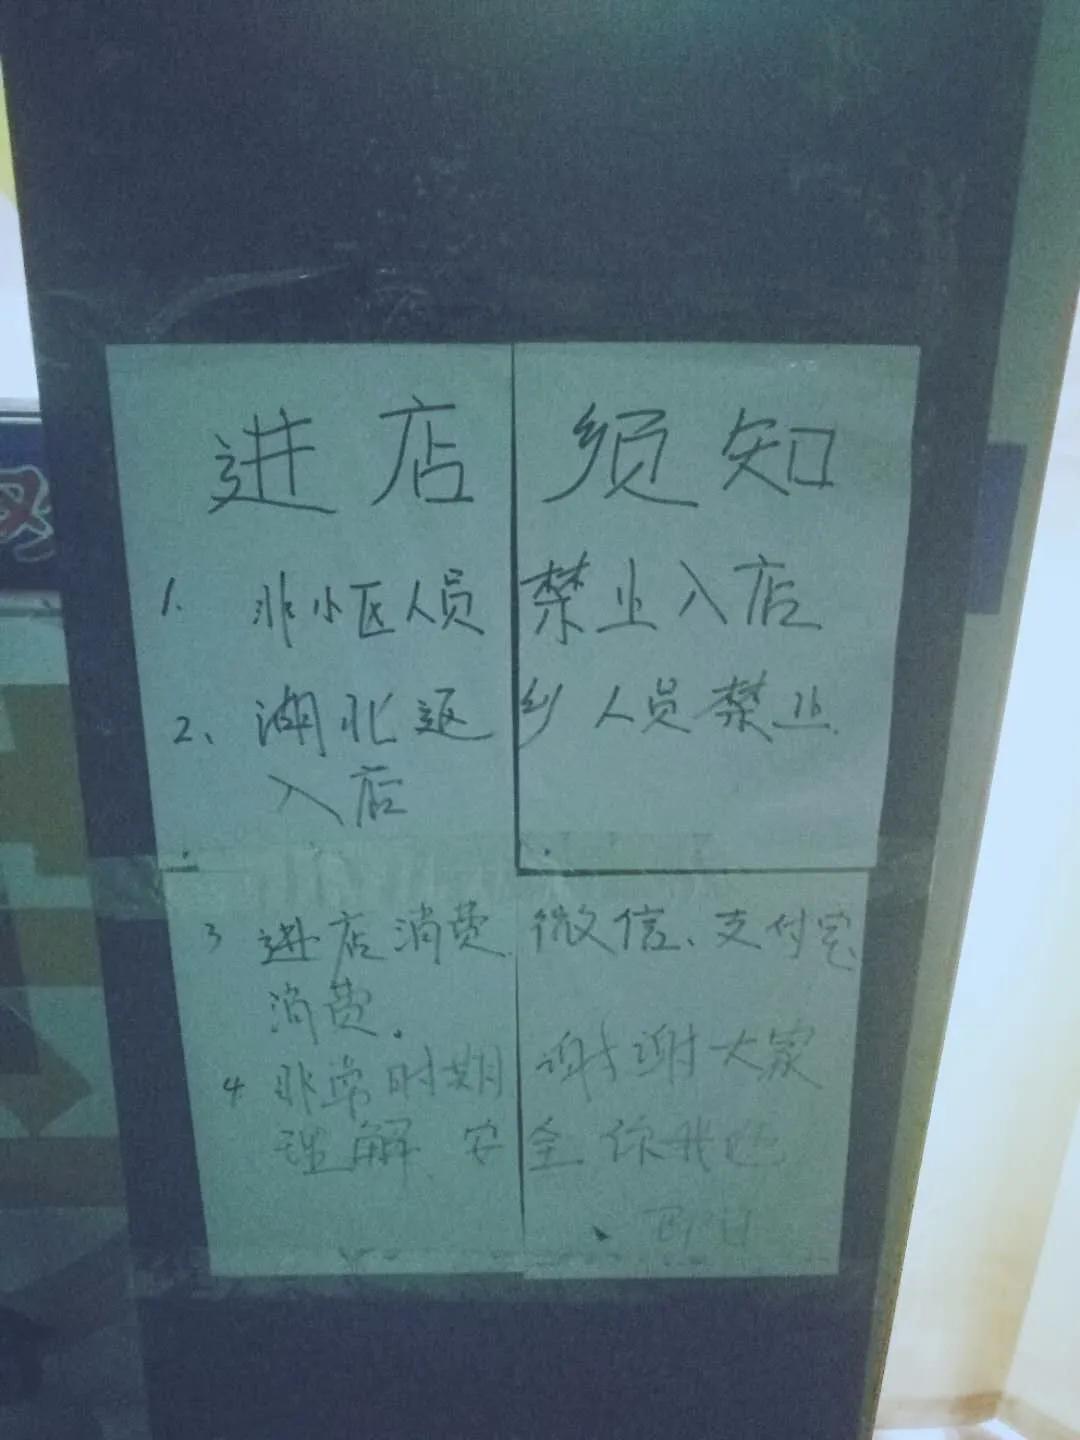 进店须知
1. 非小区人员禁止入店
2、湖北返乡人员禁止
入店
3 进店消费.微信、支付宝
消费.
4 非常时期 谢谢大家
理解、安全你我他